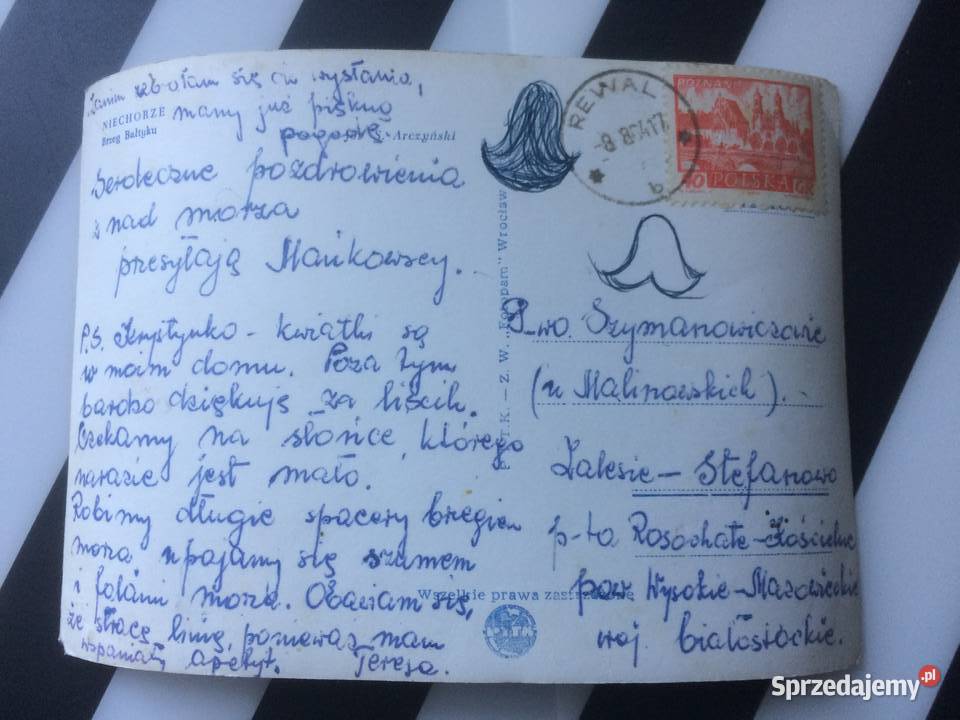 Zanim zebrałam się do wysłania,
mamy już piękną
pogodę
NIECHORZE
Brzeg Bałtyku
Arczyński
Serdeczne pozdrowienia
z nad morza
przesyłają Mańkowscy.
P.S. Krystynko - kwiatki są
w moim domu. Poza tym
bardzo dziękuję za liścik.
Czekamy na słońce, którego
narazie jest mało.
Robimy długie spacery brzegiem
morza upajamy się szumem
i falami morza. Obawiam się,
że stracę linię, ponieważ mam
wspaniały apetyt. Teresa.
T.K. — Z. W. „Fotopam" Wrocław
Wszelkie prawa zastrzeżone
PTTK
REWAL
-8.8 17
b
POZNAŃ
40 POLSKA GR
P-wo. Szymanowiczowie
(u Malinowskich).
Zalesie - Stefanowo
p-ta Rosochate-Kościelne
pow Wysokie-Mazowieckie
woj. białostockie.
Sprzedajemy.pl